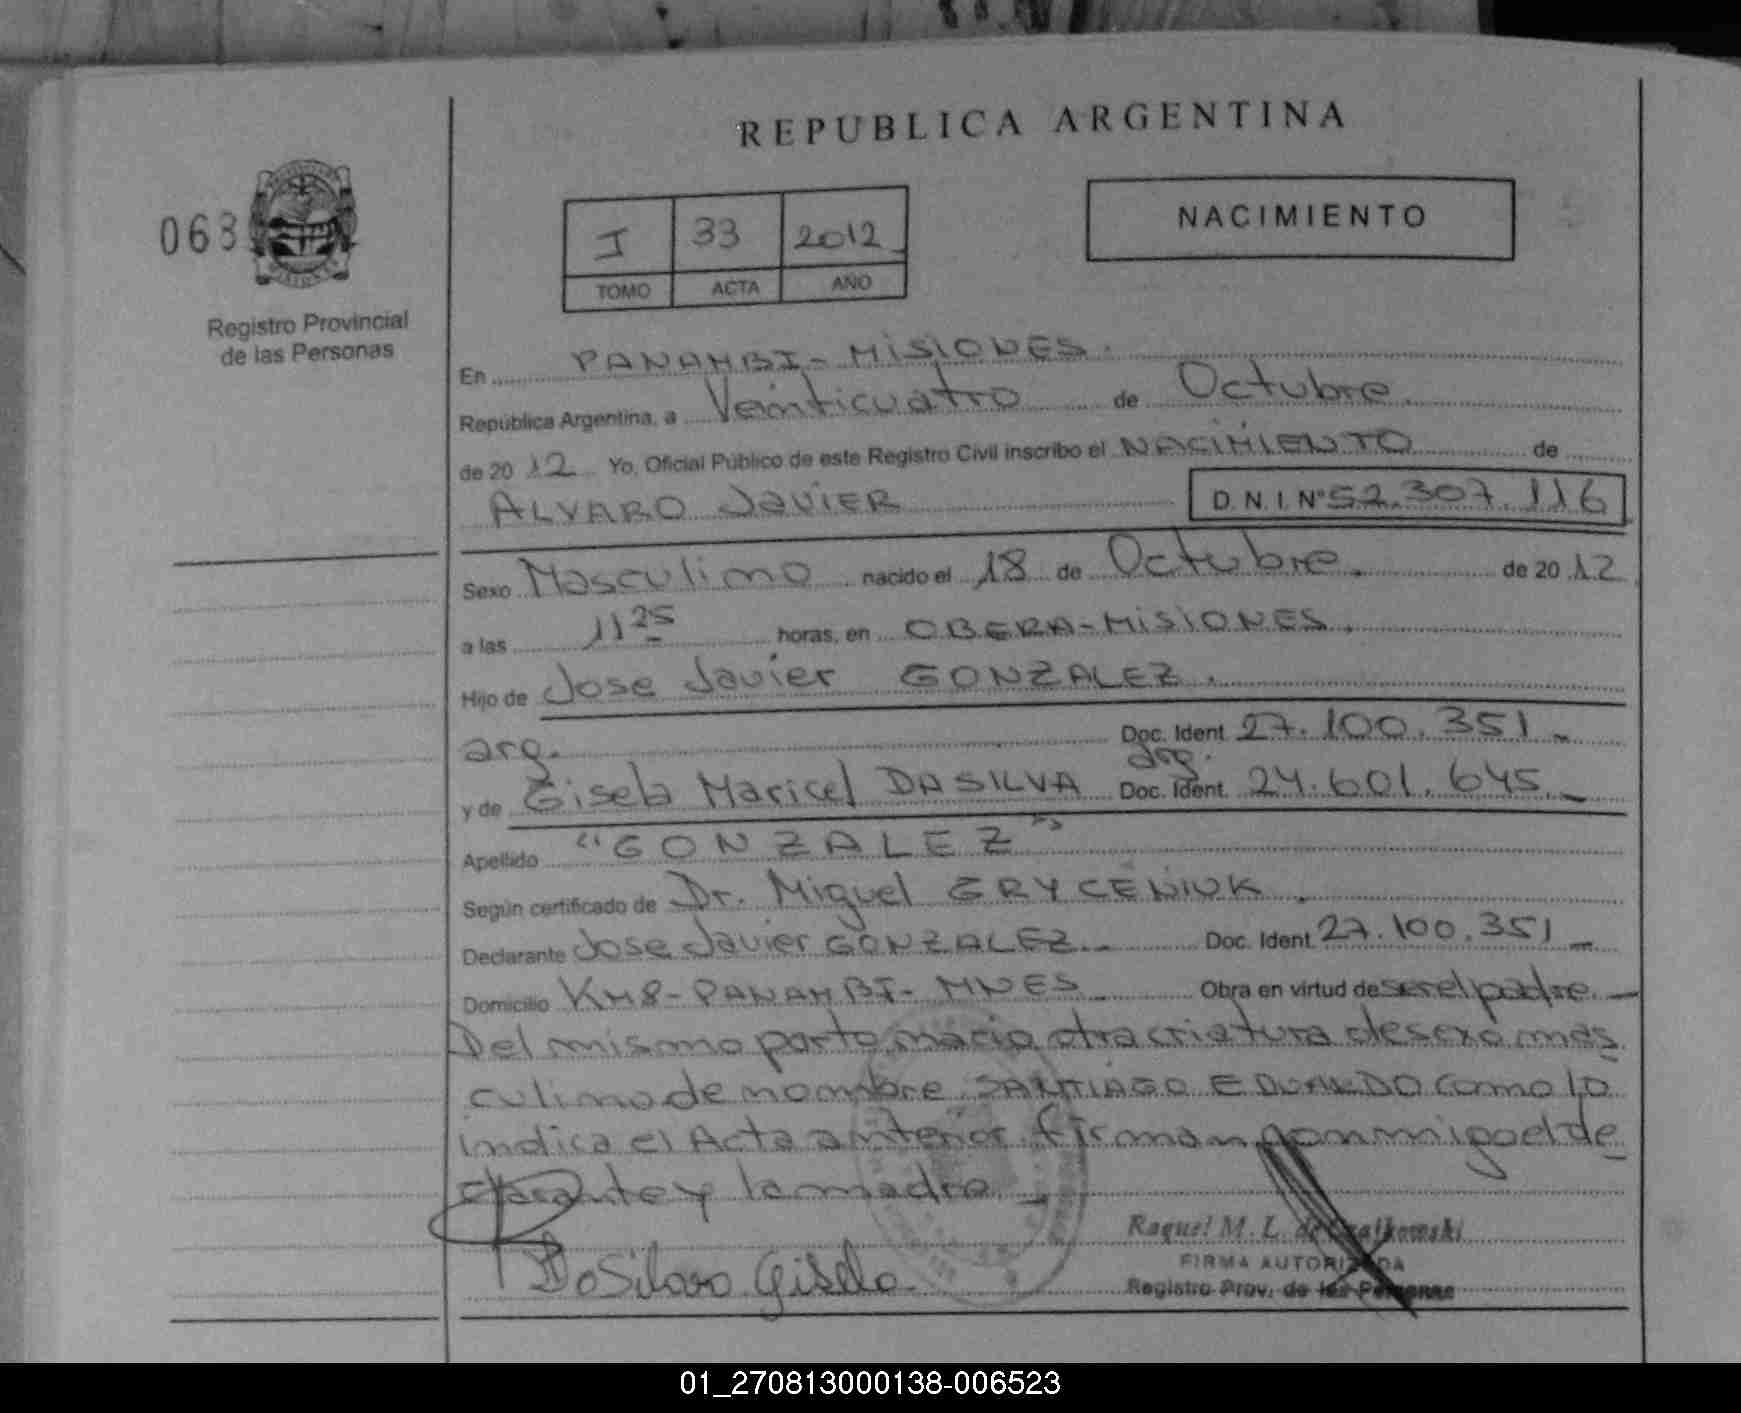 REPUBLICA ARGENTINA
063
I 33 2012
TOMO ACTA AÑO
NACIMIENTO
Registro Provincial
de las Personas
En PANAMBI - MISIONES.
República Argentina, a Veinticuatro de Octubre.
de 20 12 Yo, Oficial Público de este Registro Civil inscribo el NACIMIENTO de
ALVARO Javier D.N.I. Nº 52.307.116
Sexo Masculino nacido el 18 de Octubre. de 20 12
a las 11 25 horas, en OBERA - MISIONES.
Hijo de Jose Javier GONZALEZ.
arg. Doc. Ident 27.100.351 -
arg.
y de Gisela Maricel DASILVA Doc. Ident. 24.601.645. -
Apellido "GONZALEZ"
Según certificado de Dr. Miguel GRYCENIUK.
Declarante Jose Javier GONZALEZ - Doc. Ident. 27.100.351 -
Domicilio KM8 - PANAMBI - MNES Obra en virtud de ser el padre. -
Del mismo parto nacio otra criatura de sexo mas
culino de nombre SANTIAGO EDUARDO como lo
indica el Acta anterior firman conmigo el de
clarante y la madre -
DaSilva Gisela.
Raquel M. L. de Czajkowski
FIRMA AUTORIZADA
Registro Prov. de las Personas
01_270813000138-006523